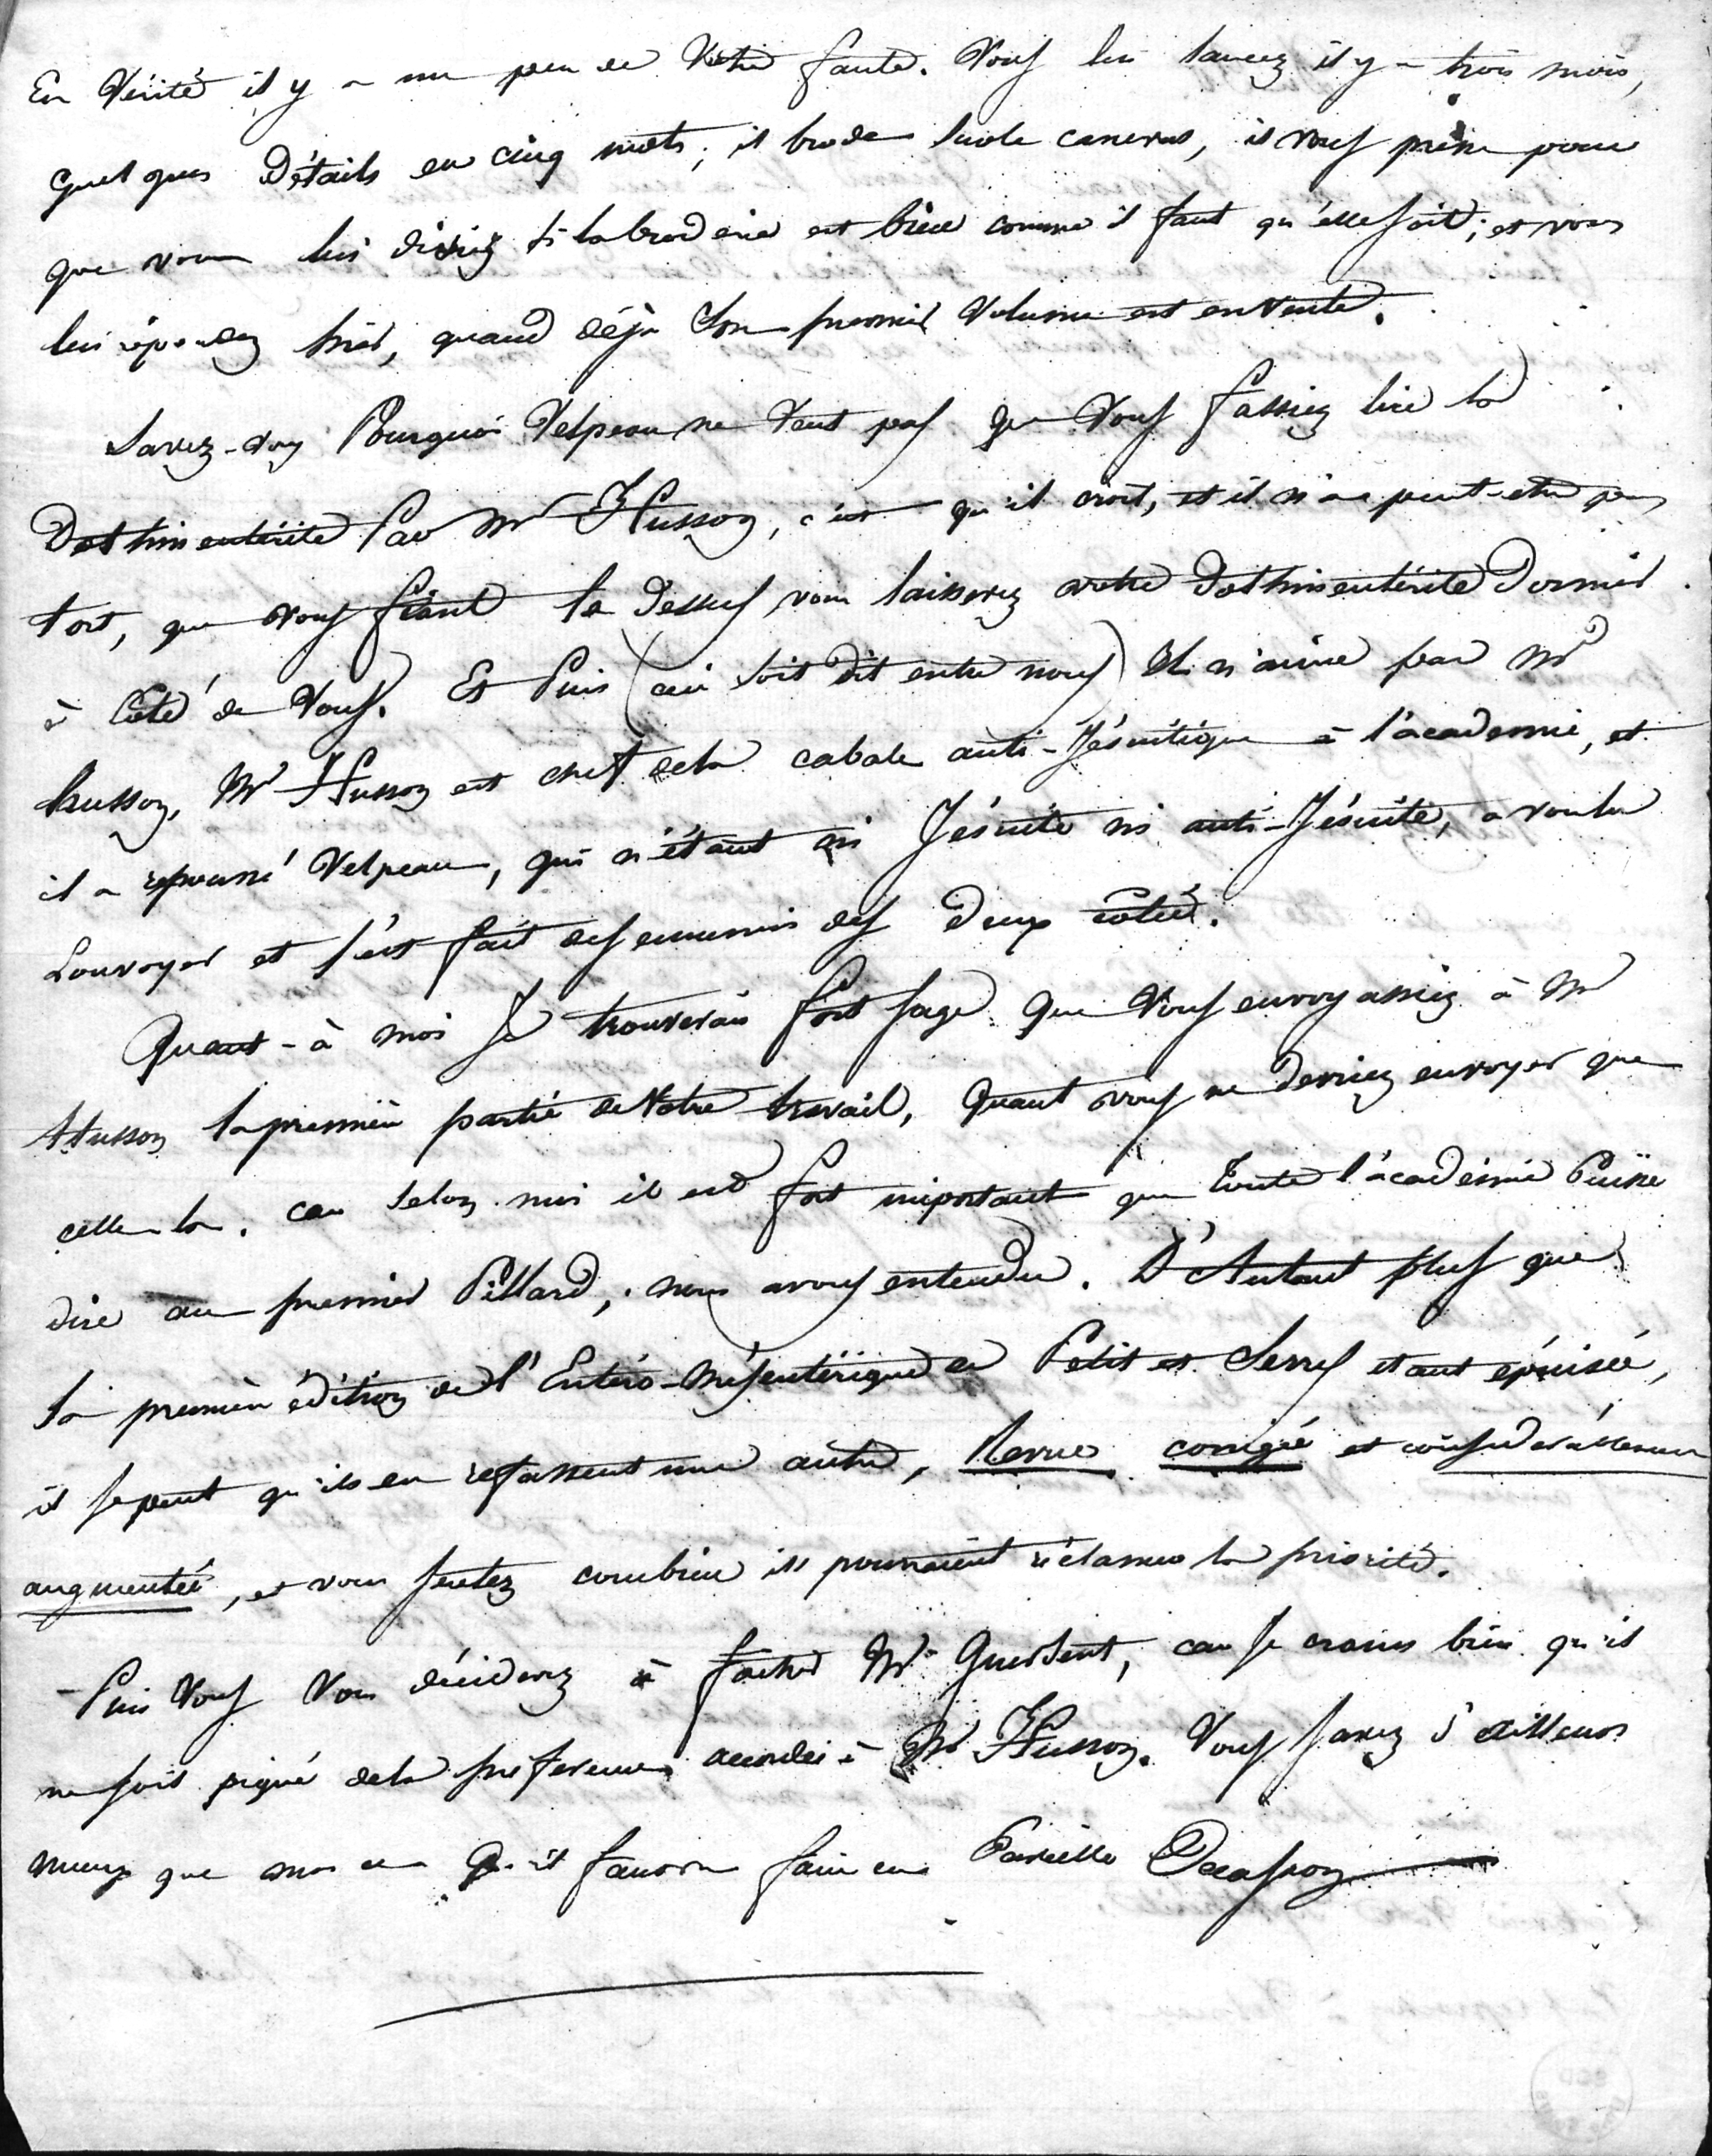 En Vérité il y a un peu de Votre faute. Vous lui lancez il y a trois mois,
quelques Détails en cinq mots; il brode sur le canevas, il vous presse pour
que vous lui disiez si la broderie est bien comme il faut qu'elle soit; et vous
lui répondez hier, quand déjà Son premier Volume est en Vente.
Savez-vous Pourquoi Velpeau ne Veut pas que Vous fassiez lire la
Dothinentérite Par Mr Husson, c'est qu'il croit, et il n'a peut-etre pas
tort, que vous fiant la dessus vous laisserez votre Dothinentérite Dormir
à Côté de Vous. Et Puis (ceci soit dit entre nous) Il n'aime pas Mr
husson, Mr Husson est chef de la cabale anti-Jésuitique à l'académie, et
il a repoussé Velpeau, qui n'étant ni Jésuite ni anti-Jésuite, a voulu
Louvoyer et s'est fait des ennemis des deux côtés.
Quant-à moi Je trouverais fort sage que Vous envoyassiez à Mr
Husson la première partie de Votre travail, Quant vous ne devriez envoyer que
celle la. car selon moi il est fort important que Toute l'académie Puisse
dire au premier Pillard, nous avons entendu. D'Autant plus que
la première édition de l'Entéro-mésentérique de Petit et Serres etant épuisée,
il se peut qu'ils en refassent une autre, Revue corrigée et considérablement
augmentée, et vous sentez combien ils pourraient réclamer la priorité.
Puis Vous Vous déciderez à facher Mr Guersent, car Je crains bien qu'il
ne soit piqué de la préference accordée à Mr Husson. Vous savez d'ailleurs
mieux que moi ce qu'il faudra faire en Pareille Occasion